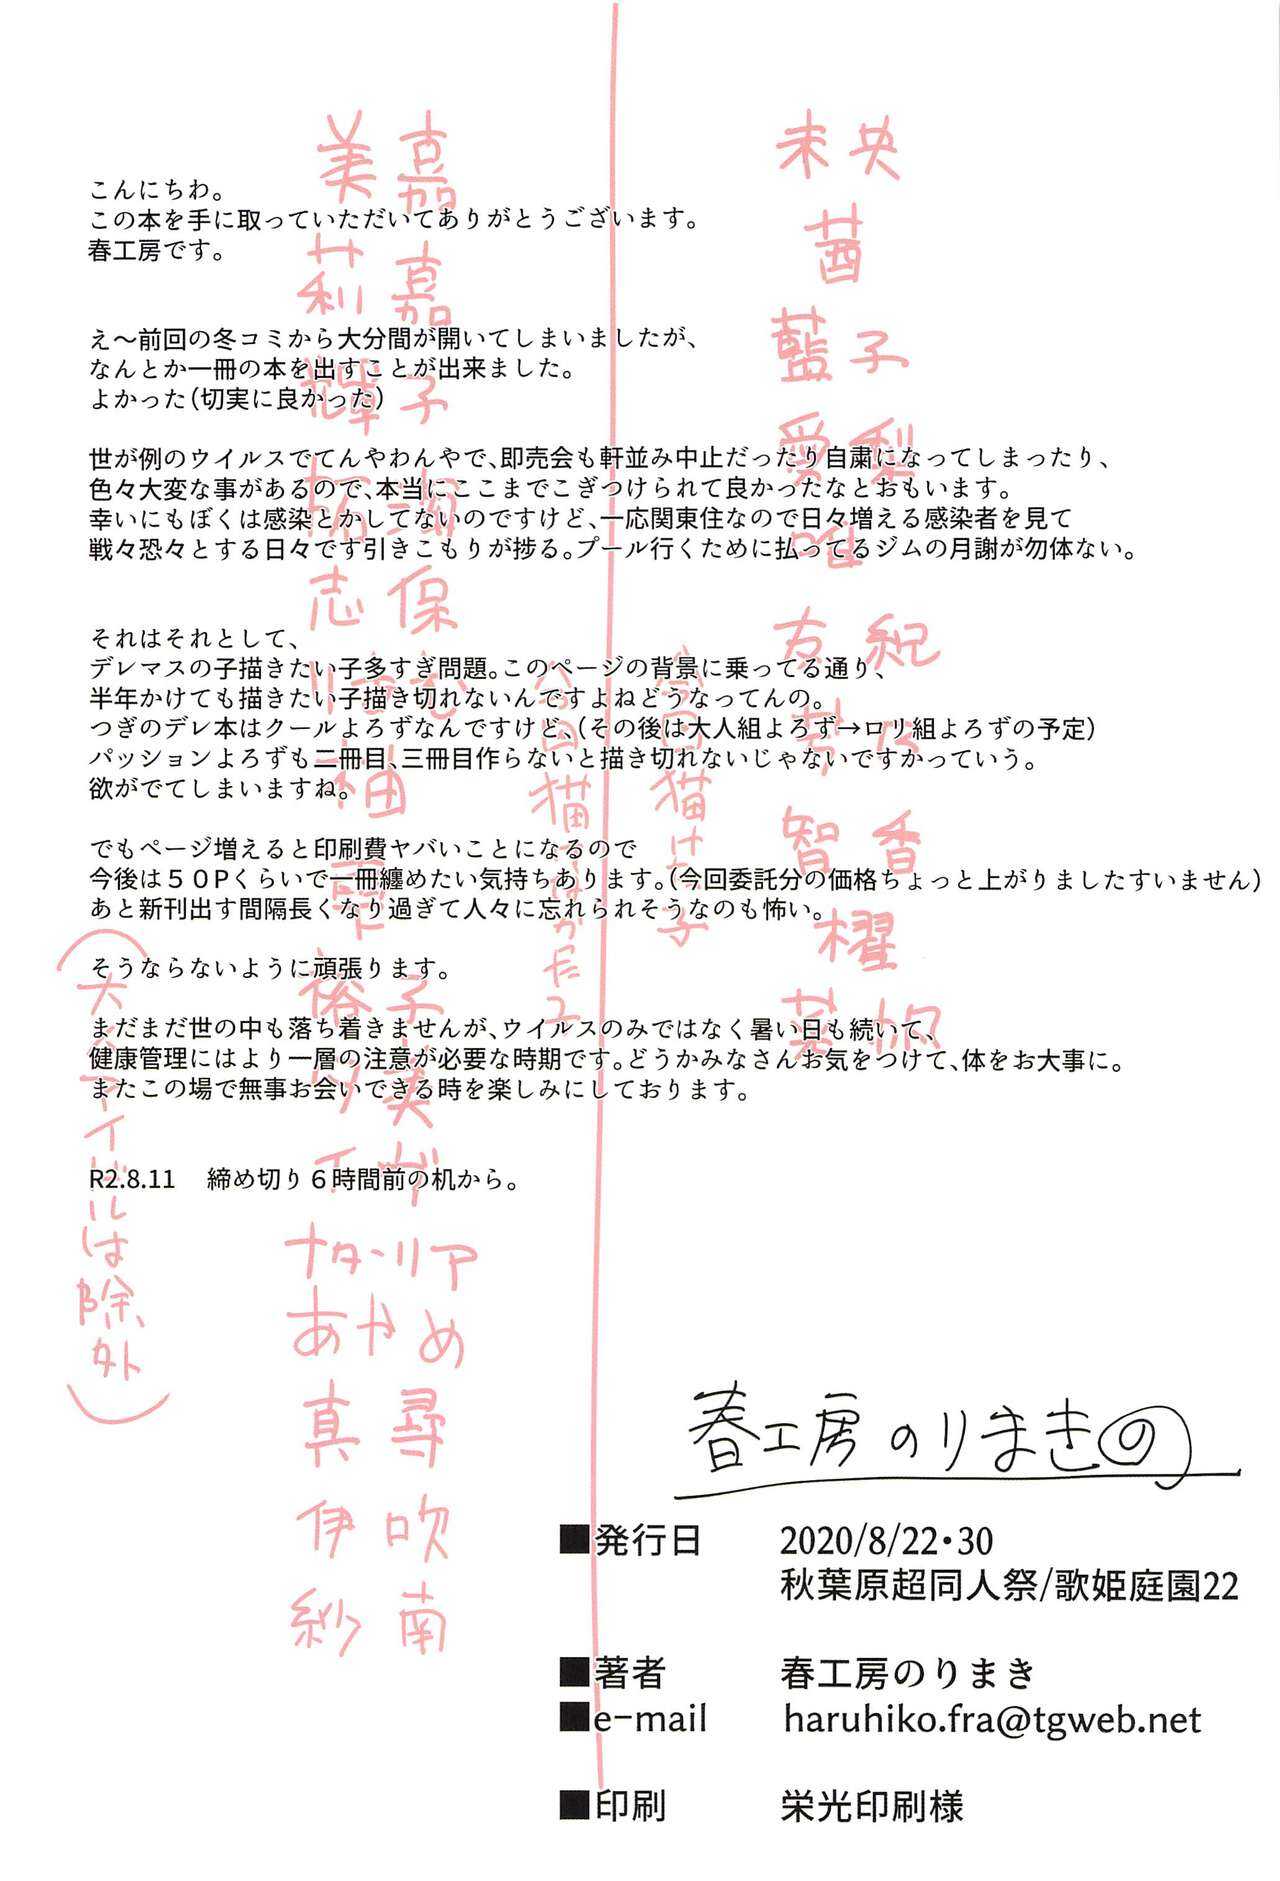 こんにちわ。
この本を手に取っていただいてありがとうございます。
春工房です。
え～前回の冬コミから大分間が開いてしまいましたが、
なんとか一冊の本を出すことが出来ました。
よかった（切実に良かった）
世が例のウイルスでてんやわんやで、即売会も軒並み中止だったり自粛になってしまったり、
色々大変な事があるので、本当にここまでこぎつけられて良かったなとおもいます。
幸いにもぼくは感染とかしてないのですけど、一応関東住なので日々増える感染者を見て
戦々恐々とする日々です引きこもりが捗る。プール行くために払ってるジムの月謝が勿体ない。
それはそれとして、
デレマスの子描きたい子多すぎ問題。このページの背景に乗ってる通り、
半年かけても描きたい子描き切れないんですよねどうなってんの。
つぎのデレ本はクールよろずなんですけど、（その後は大人組よろず→ロリ組よろずの予定）
パッションよろずも二冊目、三冊目作らないと描き切れないじゃないですかっていう。
欲がでてしまいますね。
でもページ増えると印刷費ヤバいことになるので
今後は５０Pくらいで一冊纏めたい気持ちあります。（今回委託分の価格ちょっと上がりましたすいません）
あと新刊出す間隔長くなり過ぎて人々に忘れられそうなのも怖い。
そうならないように頑張ります。
まだまだ世の中も落ち着きませんが、ウイルスのみではなく暑い日も続いて、
健康管理にはより一層の注意が必要な時期です。どうかみなさんお気をつけて、体をお大事に。
またこの場で無事お会いできる時を楽しみにしております。
R2.8.11　締め切り６時間前の机から。
未央
茜
藍子
愛梨
唯
友紀
智香
櫂
今回描けた子
美嘉
莉嘉
輝子
拓海
志保
りあむ
柚
雫
裕子
ナターリア
あやめ
真尋
伊吹
紗南
春工房のりまきの
■発行日　2020/8/22・30
秋葉原超同人祭/歌姫庭園22
■著者　春工房のりまき
■e-mail　haruhiko.fra@tgweb.net
■印刷　栄光印刷様